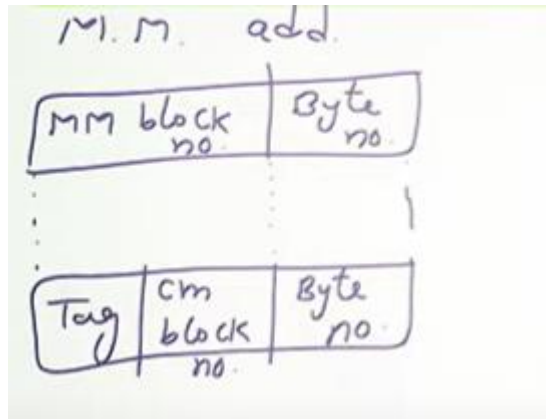 M.M. add.
MM block no.
Byte no.
Tag
Cm block no.
Byte no.